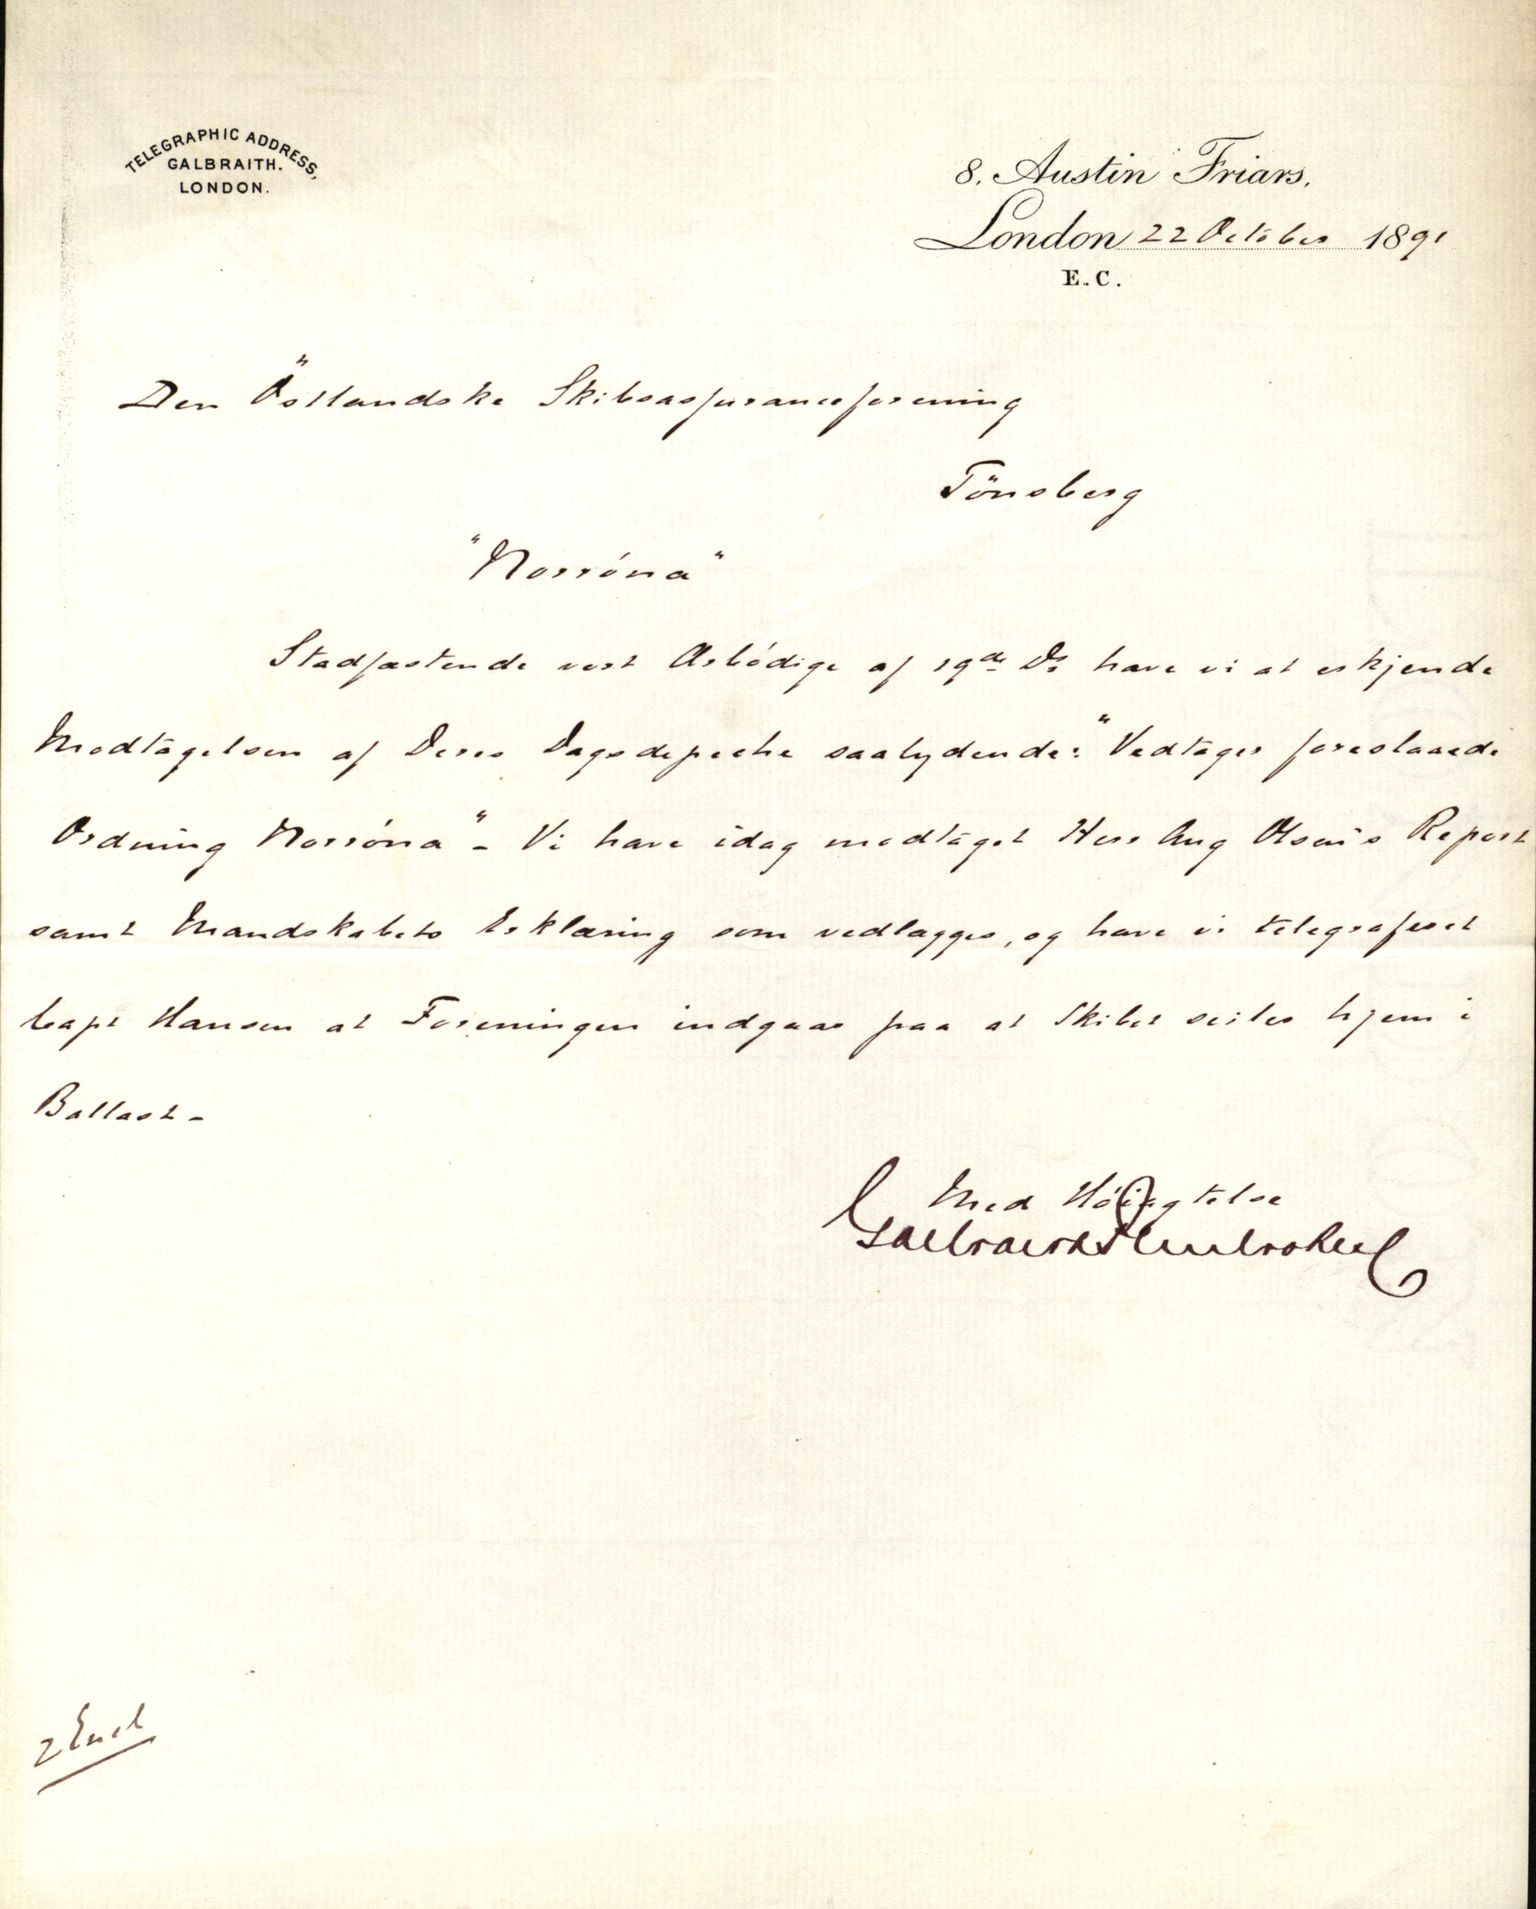 TELEGRAPHIC ADDRESS,
GALBRAITH.
LONDON.
8. Austin Friars,
London 22 October 1891
E.C.
Den Östlandske Skibsassuranceforening
Tönsberg
"Norróna"
Stadfæstende vort Ærbódige af 19de Ds have vi at erkjende
Modtagelsen af Deres Dagsdepeche saalydende: "Vedtager foreslaaede
Ordning Norróna" - Vi have idag modtaget Herr Aug Olsen's Report
samt Mandskabets Erklæring som vedlægges, og have vi telegraferet
Capt Hansen at Foreningen indgaar paa at Skibet seiles hjem i
Ballast -
Med Hóiagtelse
Galbraith Pembroke
2 Encl